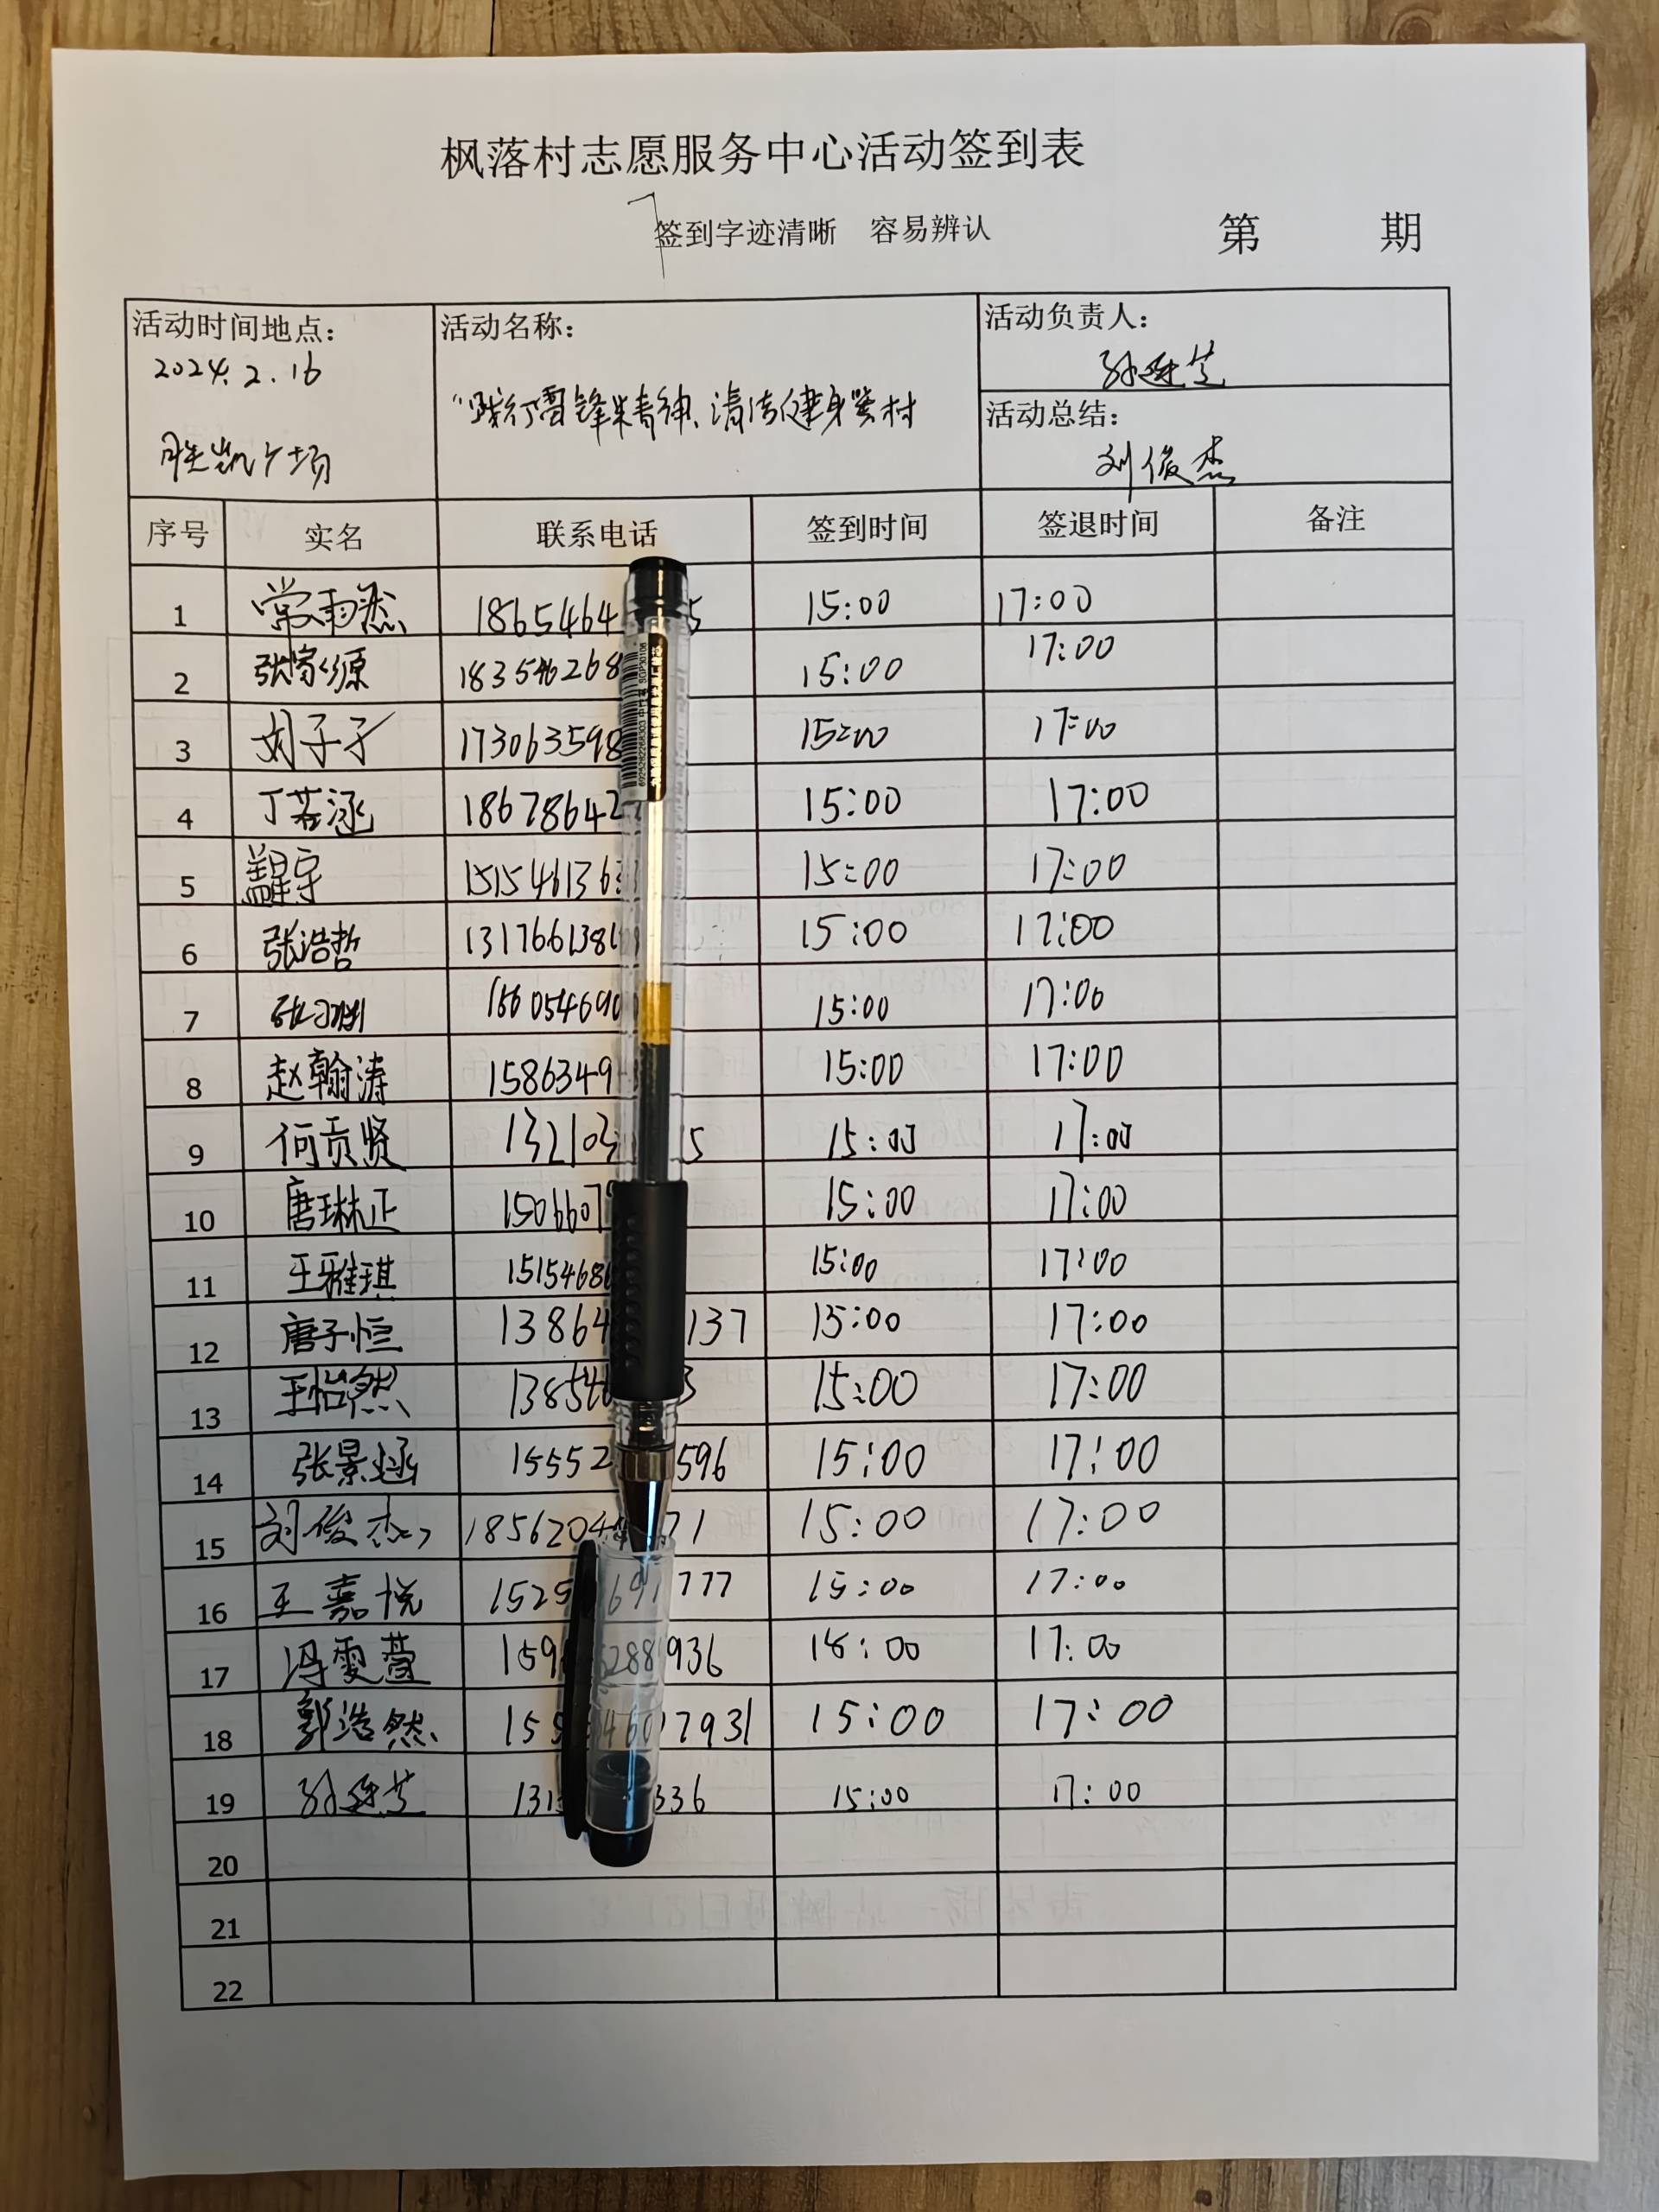 枫落村志愿服务中心活动签到表
签到字迹清晰 容易辨认 第 期
活动时间地点: 活动名称: 活动负责人:
2024.2.16 孙延芝
"践行雷锋精神、清洁健身器材
活动总结:
胜凯广场 刘俊杰
序号 实名 联系电话 签到时间 签退时间 备注
1 常雨 1865464 5 15:00 17:00
2 张家源 183546268 15:00 17:00
3 刘子 173063598 15:00 17:00
4 丁若涵 18678642 15:00 17:00
5 1515461363 15:00 17:00
6 张浩哲 131766138 15:00 17:00
7 156054690 15:00 17:00
8 赵翰涛 1586349 15:00 17:00
9 何贡贤 132103 5 15:00 17:00
10 唐琳正 1506607 15:00 17:00
11 王雅琪 1515468 15:00 17:00
12 唐子恒 13864 137 15:00 17:00
13 王怡然 13854 3 15:00 17:00
14 张景涵 15552 596 15:00 17:00
15 刘俊杰 1856204 71 15:00 17:00
16 王嘉悦 1525 691777 15:00 17:00
17 冯雯萱 159 288936 15:00 17:00
18 郭浩然 155 46017931 15:00 17:00
19 孙延芝 131 336 15:00 17:00
20
21
22